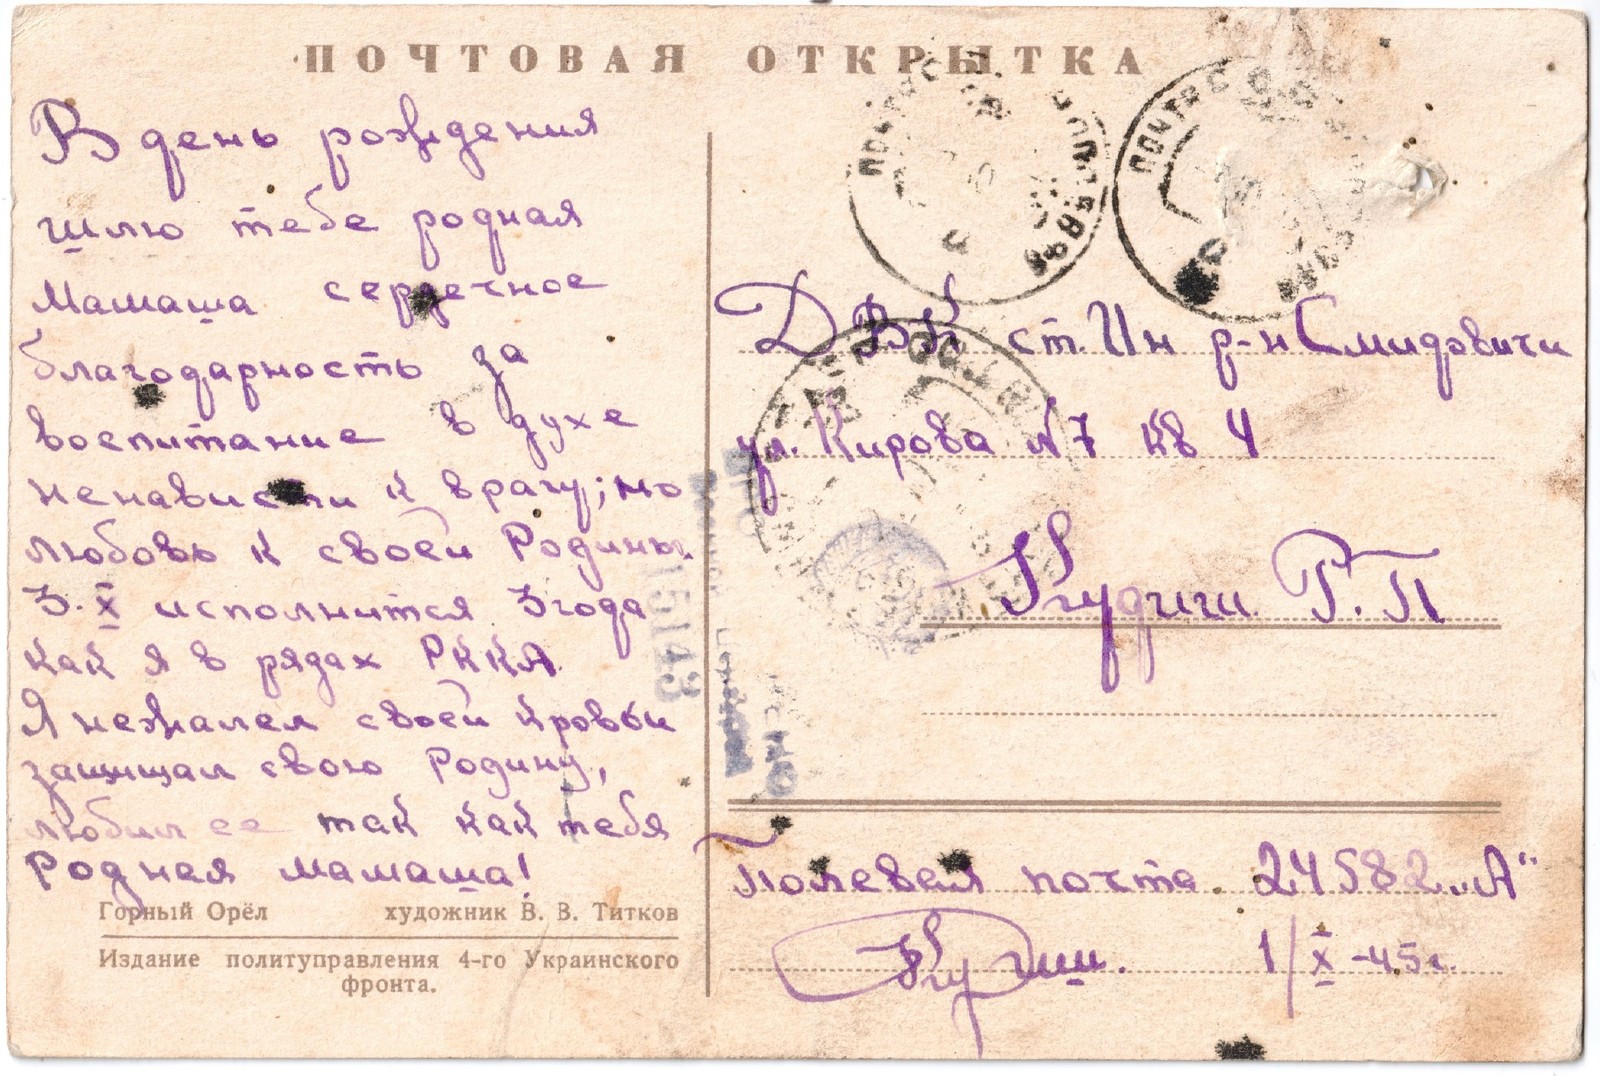 ПОЧТОВАЯ ОТКРЫТКА
В день рождения
шлю тебе родная
Мамаша сердечное
благодарность за
воспитание в духе
ненависти к врагу; но
любовь к своей Родины
3.X исполнится 3 года
как я в рядах РККА.
Я нежалел своей кровьи
защищал свою Родину,
любил ее так как тебя
Родная мамаша!
Горный Орёл художник В. В. Титков
Издание политуправления 4-го Украинского
фронта.
ПОЧТА
ПОЧТА
ДВК ст. Ин р-н Смидовичи
ул. Кирова N 7 кв 4
Р. П
15143
Полевая почта 24582 „А"
1/X-45г.